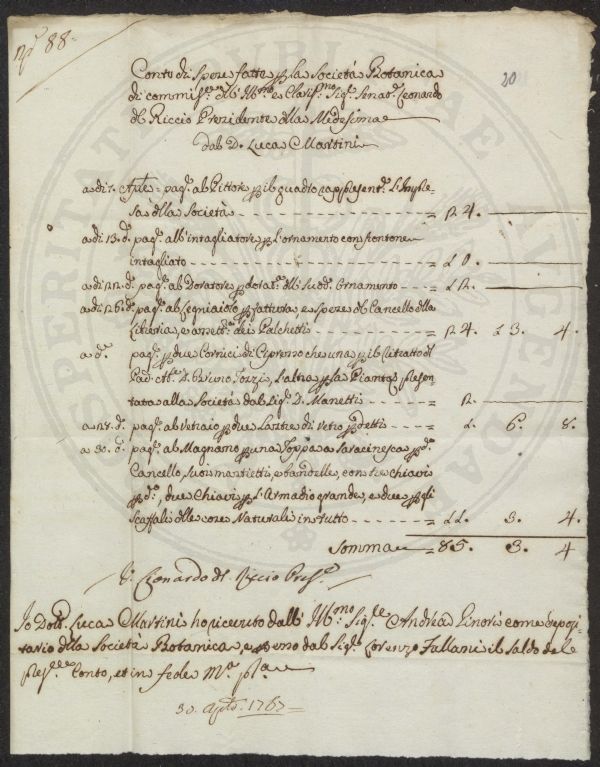 N° 88.
20
Conto di Spese fatte p la Società Botanica
di commiss.ne dell' Ill.mo e Claris.mo Sig.e Senat.e Leonardo
del Riccio Presidente della Medesima
dal D. Luca Martini
a di 7. Aple. pag.i al Pittore p il quadro rappresent.e l'Impre-
sa della Società
a di 13. d.o pag.i all' intagliatore p l'ornamento con frontone
intagliato
a di 22. d.o pag.i al Doratore p dorat.a dell' sud.o Ornamento
a di 26. d.o pag.i al Legniaiolo p fattura, e spese del Cancello della
Libreria, e dei Palchetti 3. 4.
a d.o pag.i p due Cornici di Cipresso che una p il Ritratto del
Pad. D. Bruno Tozzi, l'altra p la Pianta presen-
tata alla Società dal Sig.e D. Manetti
a 28. d.o pag.i al Vetraio p due Lastre di Vetro p detti 6. 8.
a 30. d.o pag.i al Magnano p una Toppa a Saracinesca p d.o
Cancello, suoi mastietti, e bandelle, con tre chiavi
p d.o, due Chiavi p l'Armadio grande, e due p gli
Scaffali delle cose Naturali in tutto 3. 4.
Somma 85. 3. 4
Leonardo del Riccio Pres.e
Io Dott. Luca Martini ho ricevuto dall' Ill.mo Sig.re Andrea Ginori come deposi-
tario della Società Botanica e p esso dal Sig.e Lorenzo Fallani il saldo del
pres.te Conto, et in fede M.o p.a
30. Aple. 1767
PUBLICAE